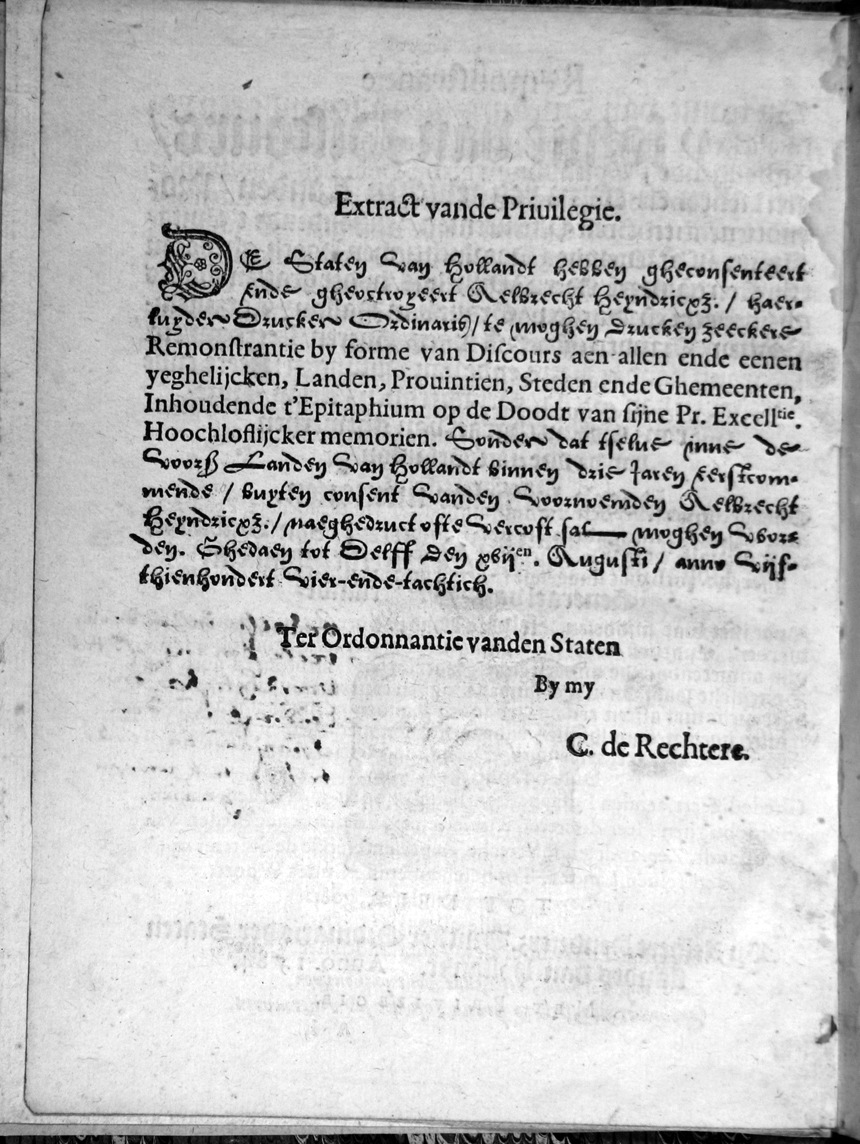 Extract vande Priuilegie.
DE Staten van Hollandt hebben gheconsenteert
ende gheoctroyeert Aelbrecht Heyndricxz. / haer-
luyder Drucker Ordinaris / te moghen drucken zeeckere
Remonſtrantie by forme van Diſcours aen allen ende eenen
yeghelijcken, Landen, Prouintien, Steden ende Ghemeenten,
Inhoudende t'Epitaphium op de Doodt van ſijne Pr. Excellᵗⁱᵉ.
Hoochloflijcker memorien. Sonder dat tselue inne de
voorß Landen van Hollandt binnen drie Jaren eerstcom-
mende / buyten consent vanden voornoemden Aelbrecht
Heyndricxz. / naeghedruct ofte vercoft sal moghen woor-
den. Ghedaen tot Delff den xvijᵉⁿ. Augusti / anno vijf-
thienhondert vier-ende-tachtich.
Ter Ordonnantie vanden Staten
By my
C. de Rechtere.